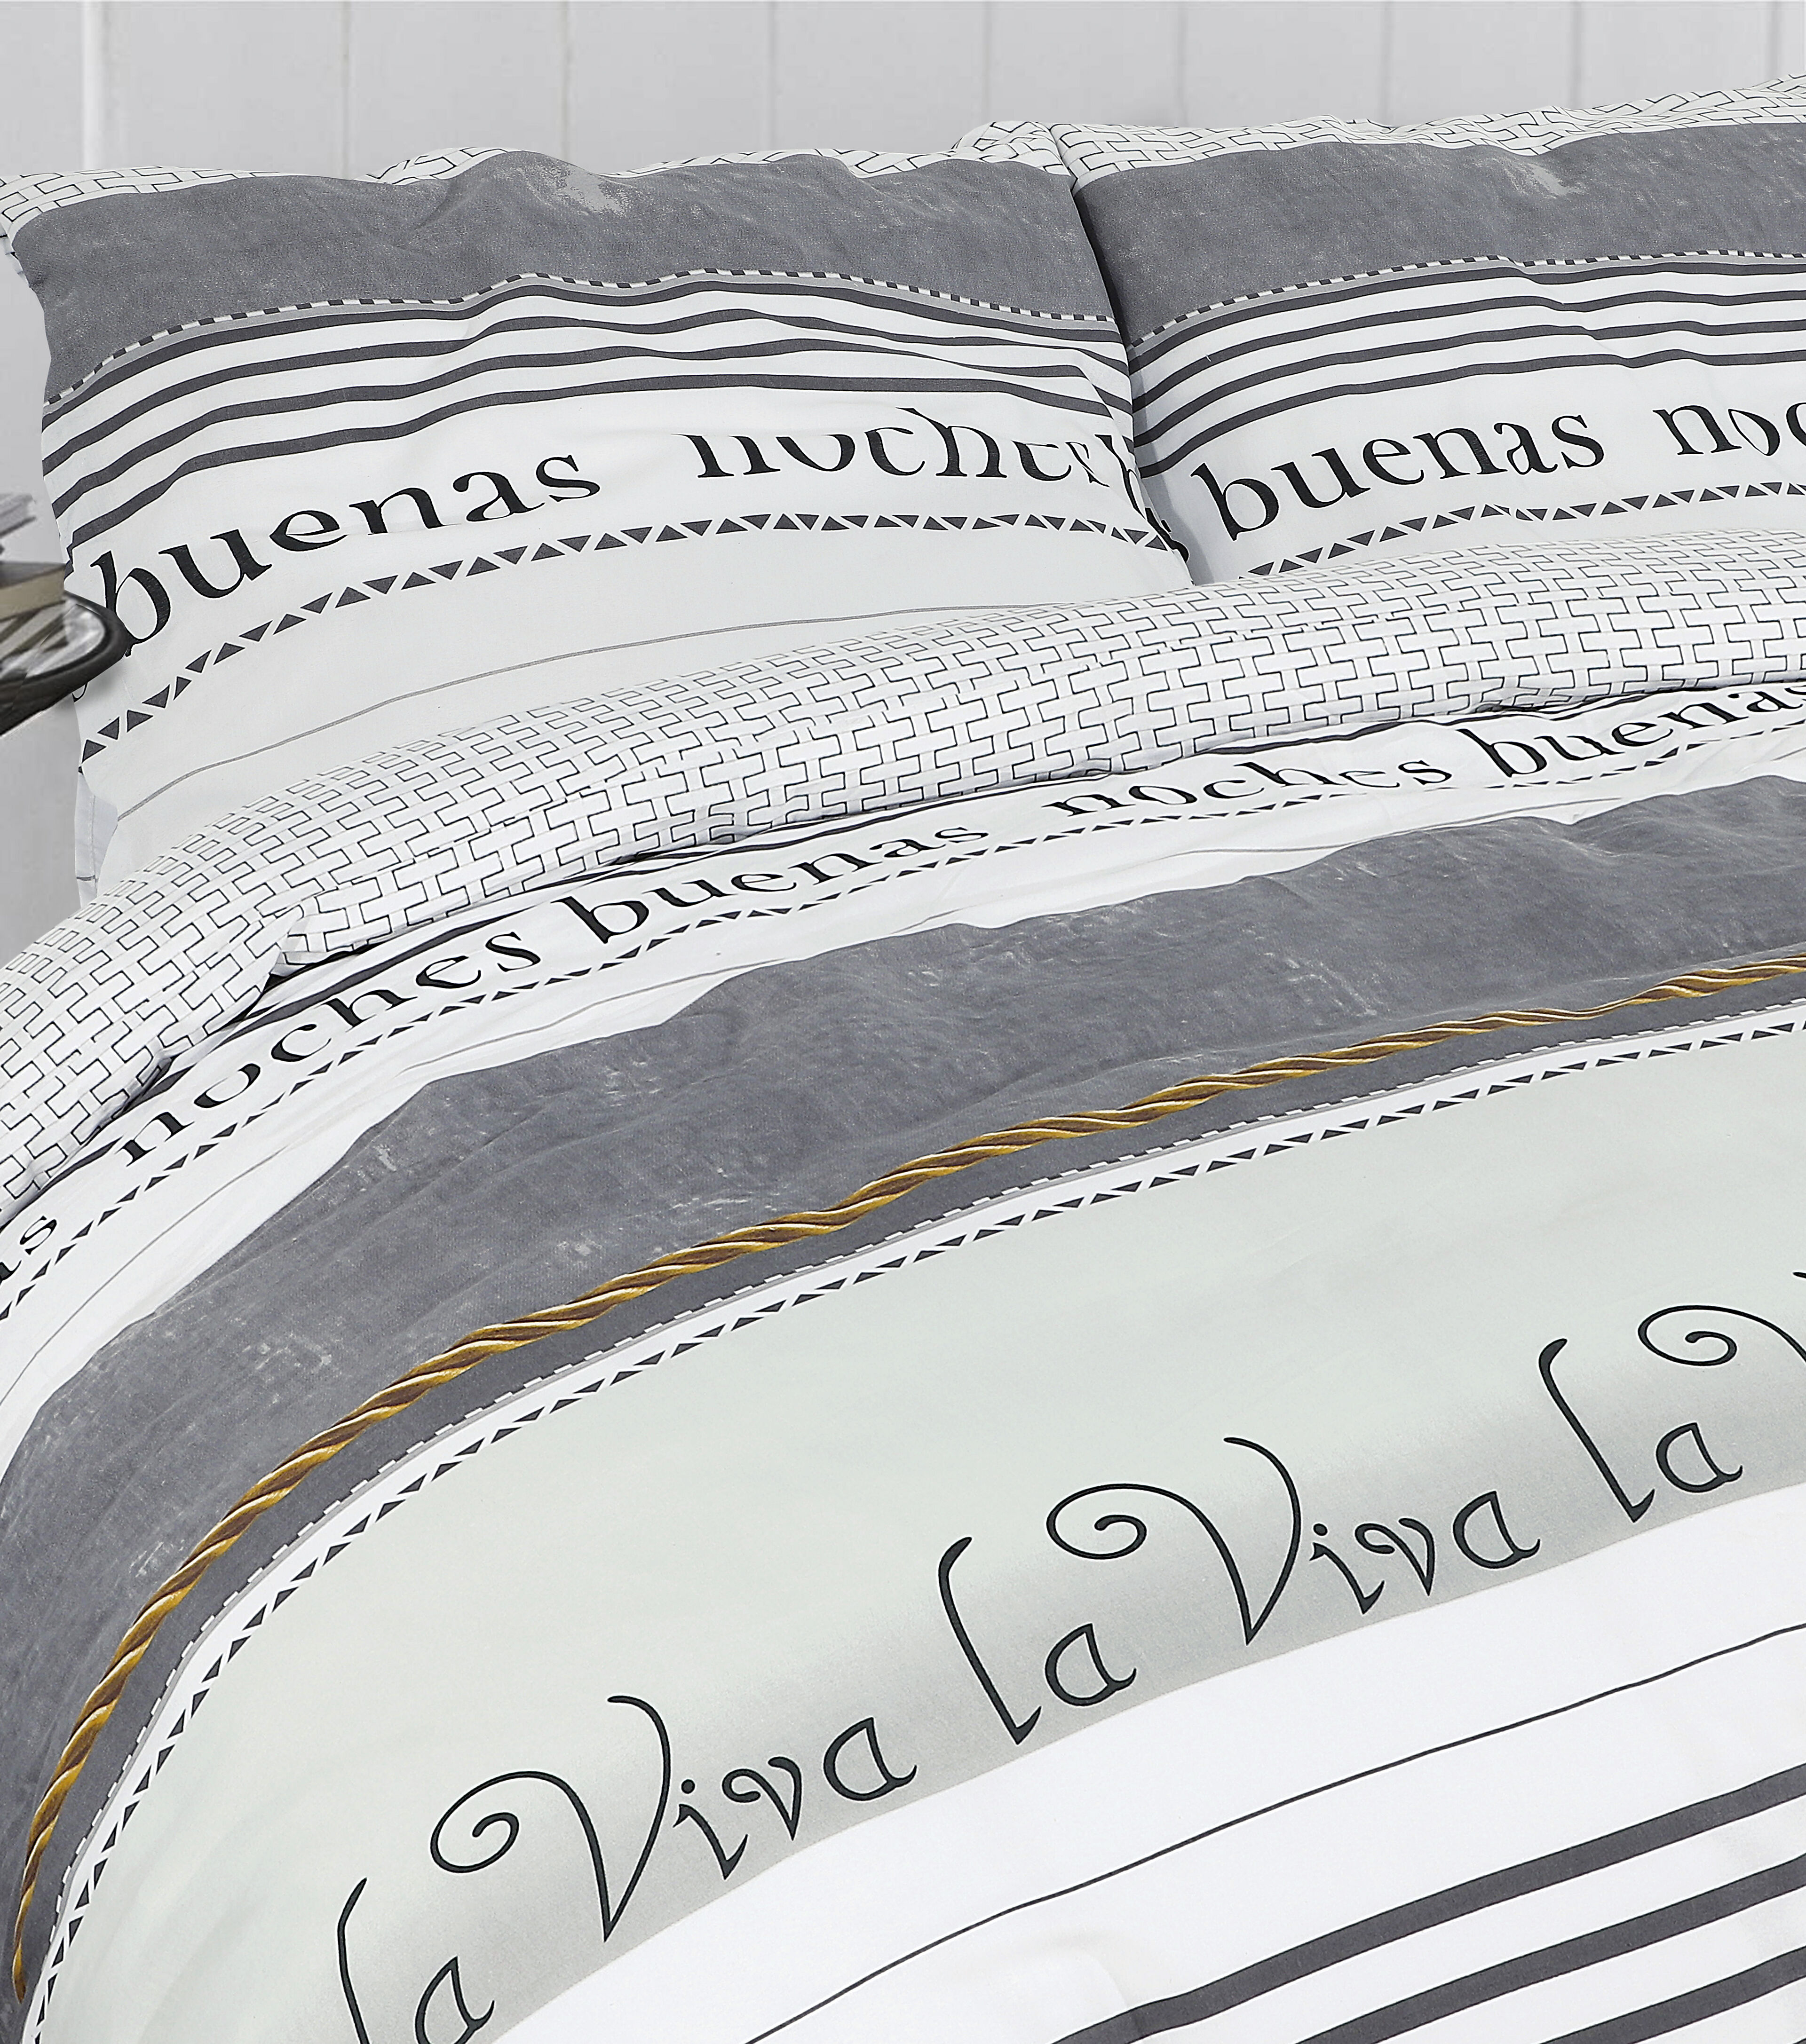 buenas noches
buenas noc
noches buenas noches buenas
la Viva la Viva la